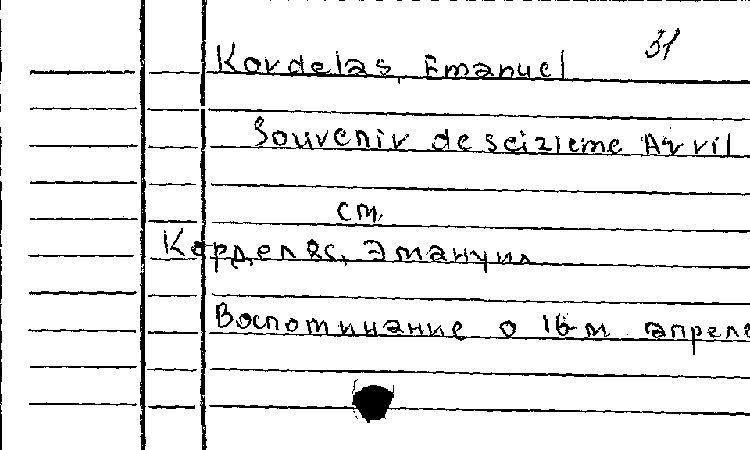 31
Kordelas, Emanuel
Souvenir de seizieme Avril
ст.
Корделас, Эмануил
Воспоминание о 16-м апреле